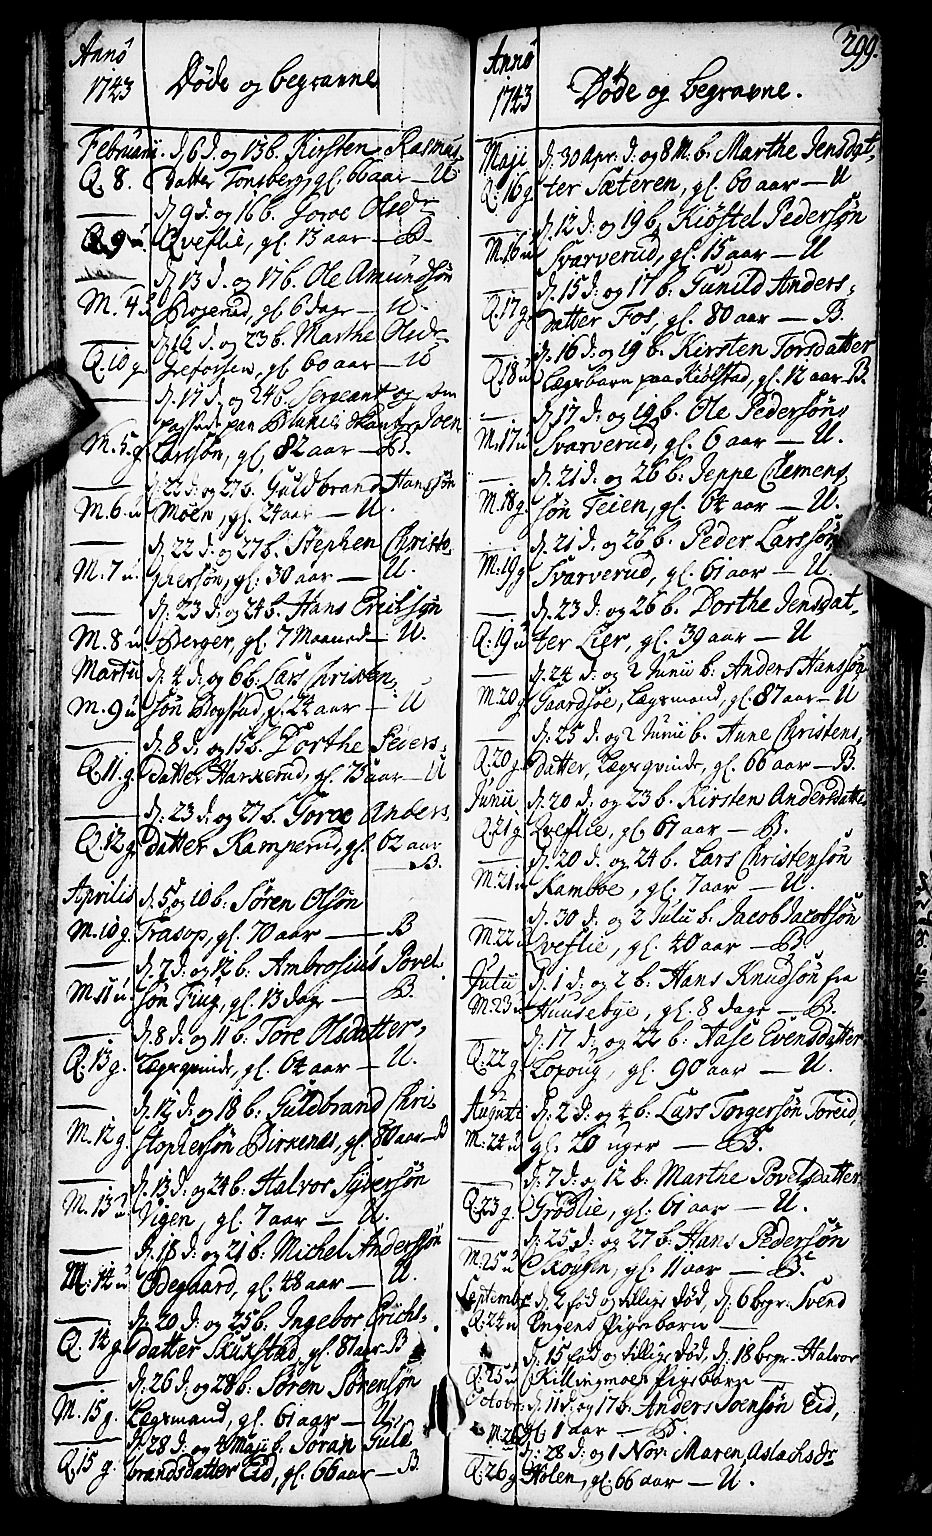 Anno
1743
Døde og begravne
Februarii. d. 6 d. og 13 b. Kirsten Rasmus
Q. 8. Datter Tonsberg, gl. 66 aar — U
d. 9 d. og 16 b. Joroe Olsdr
Q. 9 u. Qveflie, gl. 13 aar — B.
d. 13 d. og 17 b. Ole Amundsøn
M. 4 u. Rogerud, gl. 6 dage — U.
d. 12 d. og 23 b. Marthe Olsdr
Q. 10 g. Greforsen, gl. 60 aar — U
d. 17 d. og 24 b. Sergeant og
paa Blakier Skantze Joen
M. 5. g. Larssøn, gl. 82 aar — B.
d. 22 d. og 27 b. Guldbrand Hanssøn
M. 6 u. Moen, gl. 24 aar — U.
d. 22 d. og 27 b. Stephen Christo-
M. 7 u. phersøn, gl. 30 aar — U.
d. 23 d. og 24 b. Hans Erichsøn
M. 8 u. Berger, gl. 7 Maaned — U.
Martii d. 4 d. og 6 b. Lars Christen-
M. 9 u. søn Bogstad gl. 24 aar — U
d. 8 d. og 15 b. Dorthe Sivers-
Q. 11. g. datter Harkerud, gl. 75 aar — U
d. 23 d. og 27 b. Joroe Anders
Q. 12 g. datter Kamperud, gl. 62 aar
— B.
Aprilis d. 5 og 10 b. Søren Olsøn
M. 10 g. Trasop, gl. 70 aar — B
d. 7 d. og 12 b. Ambrosius Povel
M. 11 u. søn Tiug, gl. 13 dage — B.
d. 8 d. og 11 b. Tore Olsdatter,
Q. 13 g. Lægsqvinde, gl. 64 aar — U.
d. 12 d. og 18 b. Guldbrand Chri-
M. 12 g. stophersøn Birkenes, gl. 80 aar — B
d. 13 d. og 24 b. Halvor Siversøn
M. 13 u. Vigen, gl. 7 aar — U.
d. 18 d. og 21 b. Michel Anderssøn
M. 14 u. Ødegaard, gl. 48 aar — U.
d. 20 d. og 25 b. Ingebor Erichs-
Q. 14 g. datter Skukstad, gl. 81 aar B
d. 26 d. og 28 b. Søren Sørensøn
M. 15 g. Lægsmand, gl. 61 aar — U.
d. 28 d. og 4 Maji b. Joran Guld
Q. 15 g. brandsdatter Eid, gl. 66 aar — B.
299.
Anno
1743
Døde og begravne.
Maji d. 30 Apr. d. og 8 M. b. Marthe Jensdat-
Q. 16 g. ter Sæteren, gl. 60 aar — U
d. 12 d. og 19 b. Kiøstel Pedersøn
M. 16 u. Svarverud, gl. 15 aar — U
d. 15 d. og 17 b. Gunild Anders-
Q. 17 g. datter Fos, gl. 80 aar — B.
d. 16 d. og 19 b. Kirsten Torsdatter
Q. 18 u. Lægsbarn paa Kiølstad, gl. 12 aar B.
d. 17 d. og 19 b. Ole Pedersøn
M. 17 u. Svarverud, gl. 6 aar — U.
d. 21 d. og 26 b. Jeppe Clemens
M. 18 g. søn Feien, gl. 64 aar — U.
d. 21 d. og 26 b. Peder Larssøn
M. 19 g. Svarverud, gl. 61 aar — U.
d. 23 d. og 26 b. Dorthe Jensdat-
Q. 19 u. ter Lier, gl. 39 aar — U
d. 24 d. og 2 Junii b. Anders Hanssøn
M. 20 g. Gaardsøe, Lægsmand, gl. 87 aar — U
d. 25 d. og 2 Junii b. Anne Christens-
Q. 20 g. datter, Lægsqvinde, gl. 66 aar — B.
Junii d. 20 d. og 23 b. Kirsten Andersdatter
Q. 21 g. Qveflie, gl. 61 aar — B.
d. 20 d. og 24 b. Lars Christensøn
M. 21 u. Kamboe, gl. 7 aar — U.
d. 30 d. og 2 Julii b. Jacob Jacobsøn
M. 22 u. Qveflie, gl. 40 aar — B.
Julii d. 1 d. og 2 b. Hans Knudsøn fra
M. 23 u. Huusebye, gl. 8 dage — B.
d. 17 d. og 22 b. Aase Evensdatter
Q. 22 g. Loroug, gl. 90 aar — U.
Augusti d. 2 d. og 4 b. Lars Torgersøn Toreid,
M. 24 u. gl. 20 uger — B.
d. 7 d. og 12 b. Marthe Povelsdatter
Q. 23 g. Grødlie, gl. 61 aar — U.
d. 25 d. og 27 b. Hans Pedersøn
M. 25 u. Skousen, gl. 11 aar — B.
September d. 2 fød og tillige død, d. 6 begr. Svend
Q. 24 u. Engens Pigebarn —
d. 15 fød og tillige død, d. 18 begr. Halvor
Q. 25 u. Killingmoes Pigebarn —
Octobr. d. 11 d. og 17 b. Anders Joensøn Eid,
M. 26 gl. 1 aar — B.
d. 28 d. og 1 Nov. Maren Aslachsdr
Q. 26 g. Holen, gl. 66 aar — U.